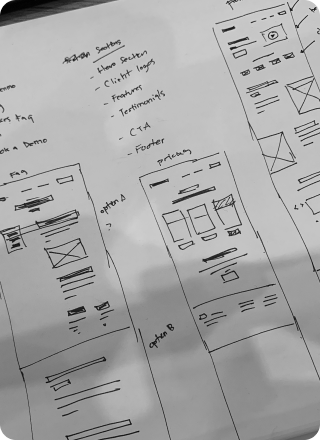 Sections
- Hero Section
- Client logos
- Features
- Testimonials
- CTA
- Footer
emo
FAQ
a Demo
FAQ
option A
?
pricing
option B